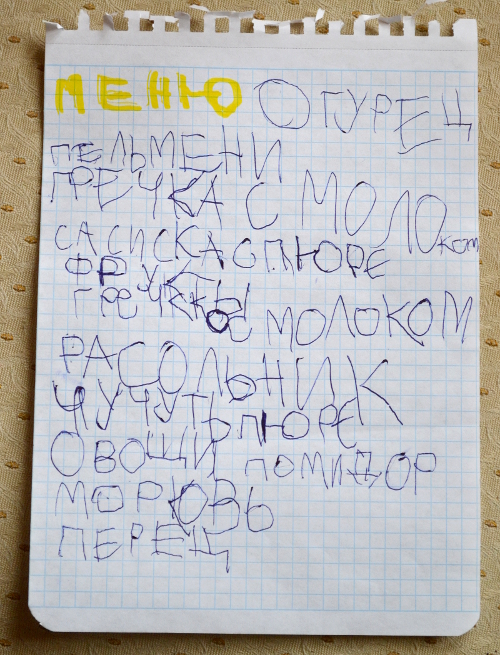 МЕНЮ ОГУРЕЦ
ПЕЛЬМЕНИ
ГРЕЧКА С МОЛОКОМ
САСИСКА С ПЮРЕ
ФРУКТЫ
ГРЕЧКЫ С МОЛОКОМ
РАСОЛЬНИК
ЧУЧУТЬ ПЮРЕ
ОВОЩИ ПОМИДОР
МОРКОВЬ
ПЕРЕЦ